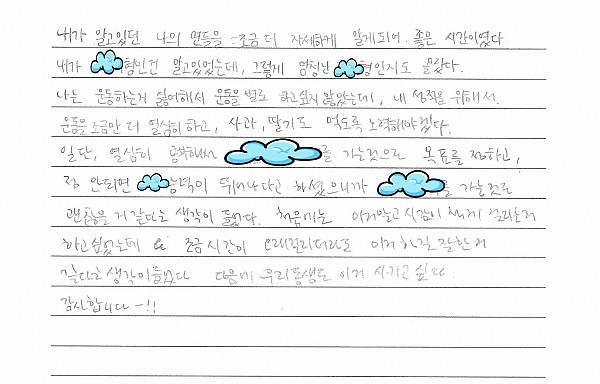 내가 알고있던 나의 면들을 조금 더 자세하게 알게되어 좋은 시간이였다.
내가 형인건 알고있었는데, 그렇게 엄청난 형인지도 몰랐다.
나는 운동하는게 싫어해서 운동을 별로 하고싶지 않았는데, 내 성적을 위해서
운동을 조금만 더 열심히 하고, 사과, 딸기도 먹도록 노력해야겠다.
일단, 열심히 공부해서 를 가는것으로 목표를 정하고,
정 안되면 능력이 뛰어나다고 하셨으니까 을 가는것도
괜찮을거 같다는 생각이 들었다. 처음에는 이거말고 시간이 적게 걸리는거
하고 싶었는데 조금 시간이 오래걸리더라도 이거 하길 잘한거
같다고 생각이들었다 다음에 우리동생도 이거 시키고 싶다.
감사합니다-!!